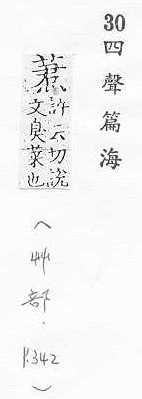 30四聲篇海
許云切說
文臭菜也
(艸部.P.342)